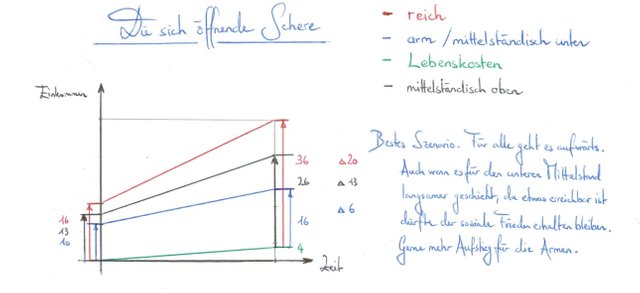 Die sich öffnende Schere
- reich
- arm / mittelständisch unten
- Lebenskosten
- mittelständisch oben
Einkommen
16
13
10
36
26
16
4
Δ 20
Δ 13
Δ 6
Zeit
Bestes Szenario. Für alle geht es aufwärts.
Auch wenn es für den unteren Mittelstand
langsamer geschieht, da etwas erreichbar ist
dürfte der soziale Frieden erhalten bleiben.
Gerne mehr Aufstieg für die Armen.